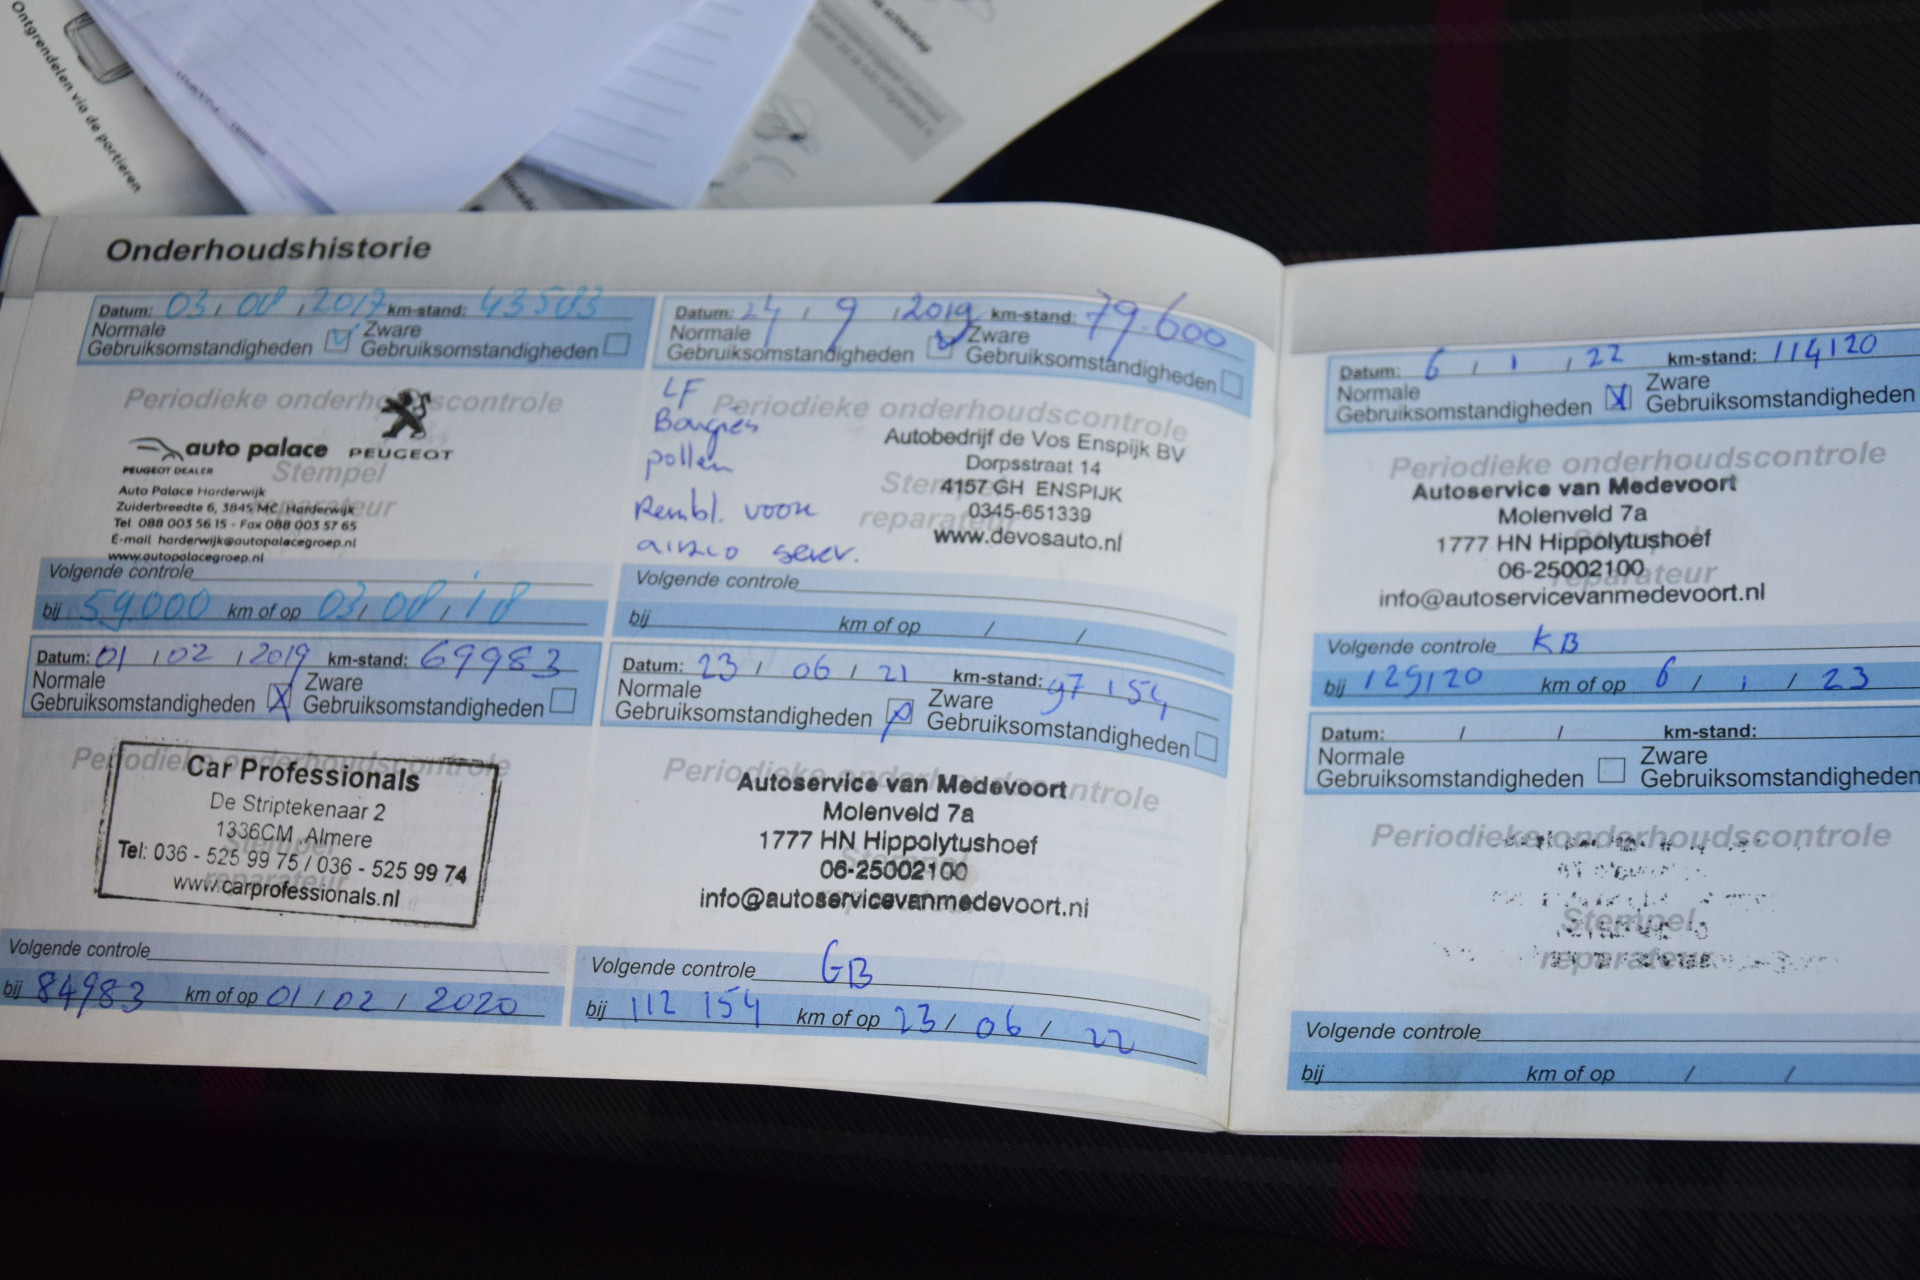 Ontgrendelen via de portieren
Onderhoudshistorie
Datum: 03 / 08 / 2017 km-stand: 43583
Normale
Gebruiksomstandigheden
Zware
Gebruiksomstandigheden
Periodieke onderhoudscontrole
auto palace PEUGEOT
PEUGEOT DEALER
Stempel
reparateur
Auto Palace Harderwijk
Zuiderbreedte 6, 3845 MC Harderwijk
Tel 088 003 56 15 - Fax 088 003 57 65
E-mail harderwijk@autopalacegroep.nl
www.autopalacegroep.nl
Volgende controle
bij 59.000 km of op 03/08/18
Datum: 01 / 02 / 2019 km-stand: 69983
Normale
Gebruiksomstandigheden
Zware
Gebruiksomstandigheden
Periodieke onderhoudscontrole
Stempel
reparateur
Car Professionals
De Striptekenaar 2
1336CM Almere
Tel: 036 - 525 99 75 / 036 - 525 99 74
www.carprofessionals.nl
Volgende controle
bij 84983 km of op 01 / 02 / 2020
Datum: 24 / 9 / 2019 km-stand: 79.600
Normale
Gebruiksomstandigheden
Zware
Gebruiksomstandigheden
LF
Bougies
pollen
Rembl. voor
airco serv.
Periodieke onderhoudscontrole
Stempel
reparateur
Autobedrijf de Vos Enspijk BV
Dorpsstraat 14
4157 GH ENSPIJK
0345-651339
www.devosauto.nl
Volgende controle
bij km of op / /
Datum: 23 / 06 / 21 km-stand: 97 154
Normale
Gebruiksomstandigheden
Zware
Gebruiksomstandigheden
Periodieke onderhoudscontrole
Stempel
reparateur
Autoservice van Medevoort
Molenveld 7a
1777 HN Hippolytushoef
06-25002100
info@autoservicevanmedevoort.nl
Volgende controle GB
bij 112 154 km of op 23 / 06 / 22
Datum: 6 / 1 / 22 km-stand: 114120
Normale
Gebruiksomstandigheden
Zware
Gebruiksomstandigheden
Periodieke onderhoudscontrole
reparateur
Autoservice van Medevoort
Molenveld 7a
1777 HN Hippolytushoef
06-25002100
info@autoservicevanmedevoort.nl
Volgende controle KB
bij 129120 km of op 6 / 1 / 23
Datum: / / km-stand:
Normale
Gebruiksomstandigheden
Zware
Gebruiksomstandigheden
Periodieke onderhoudscontrole
Stempel
reparateur
Volgende controle
bij km of op / /